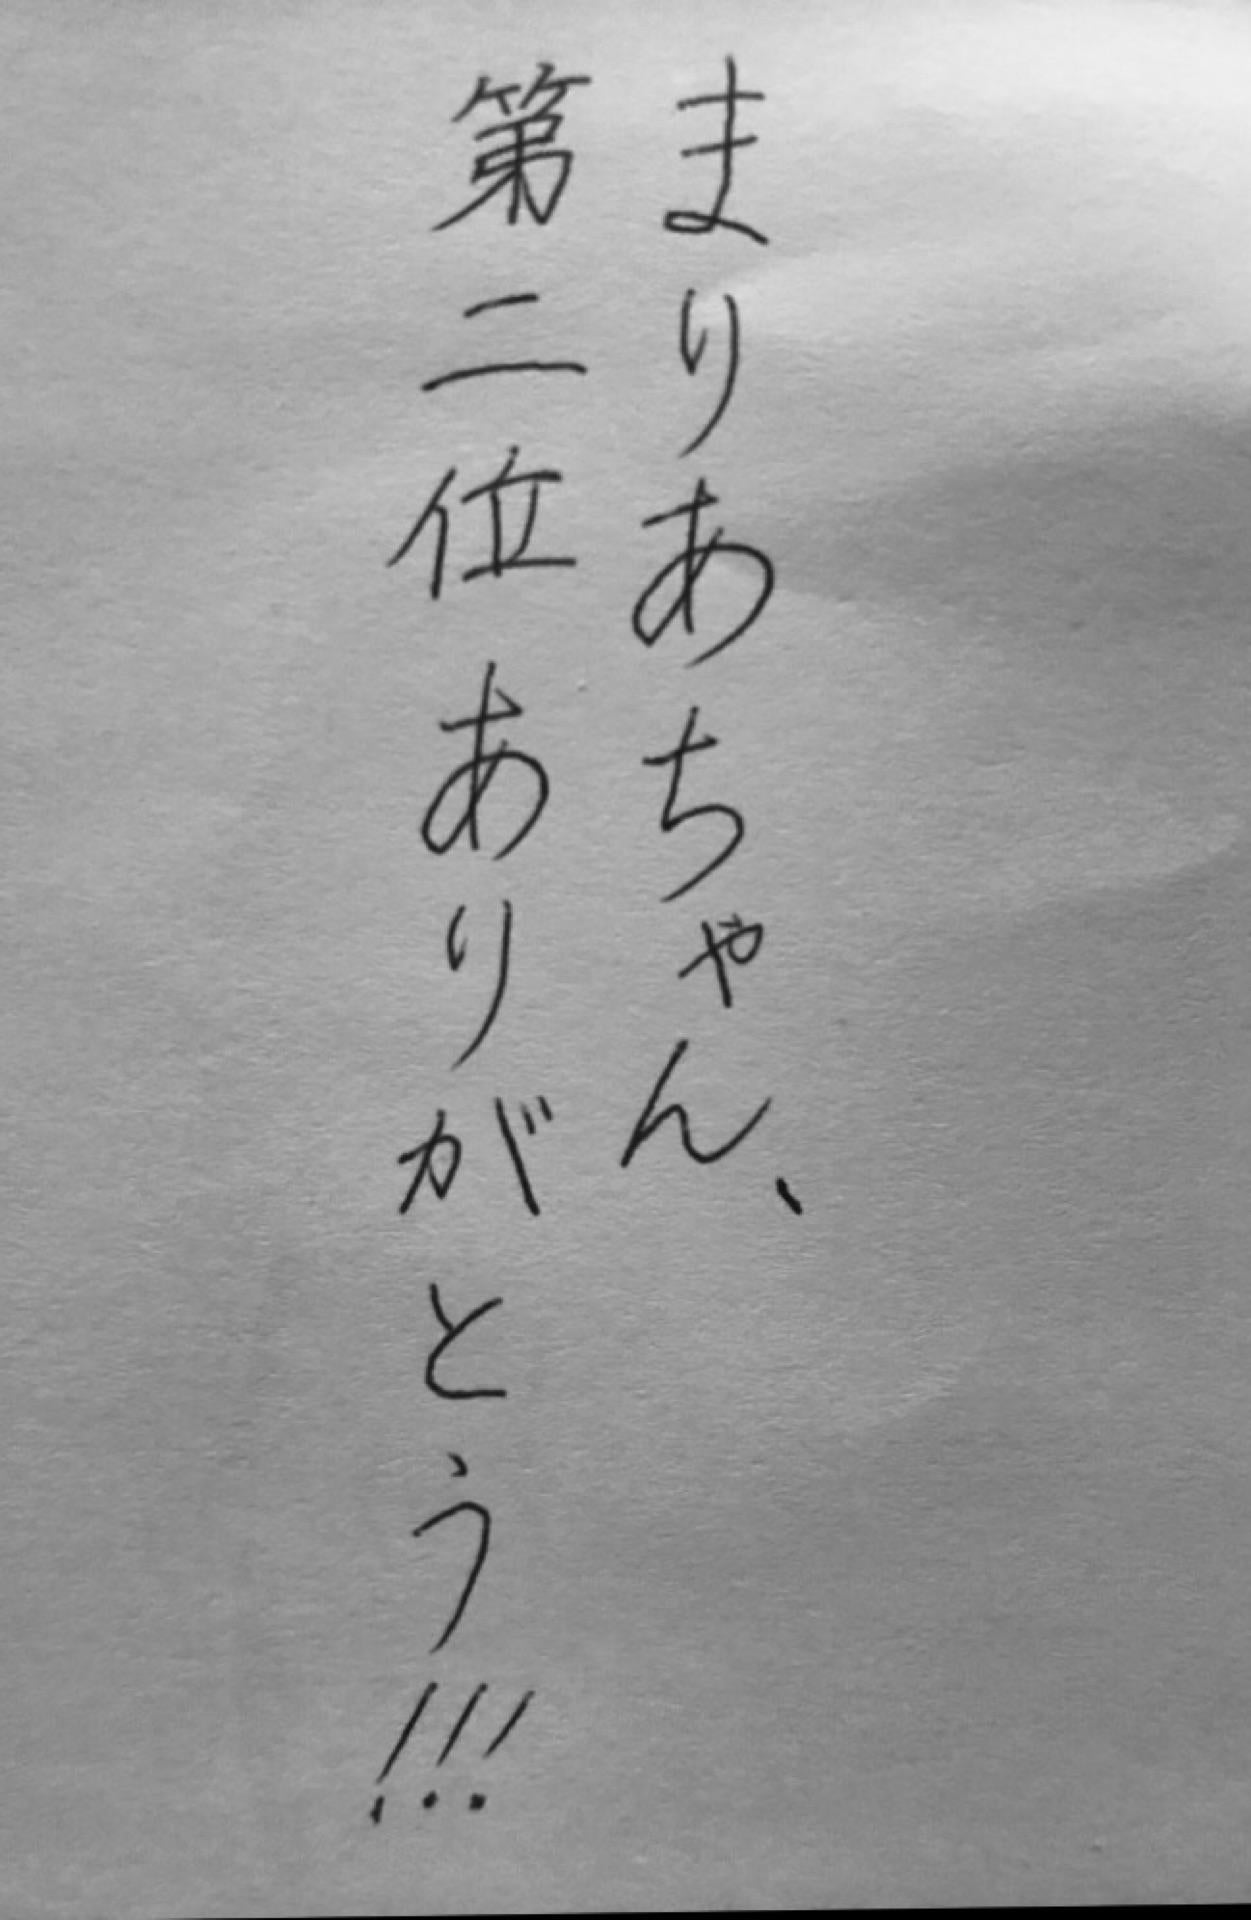 まりあちゃん、
第二位ありがとう!!!